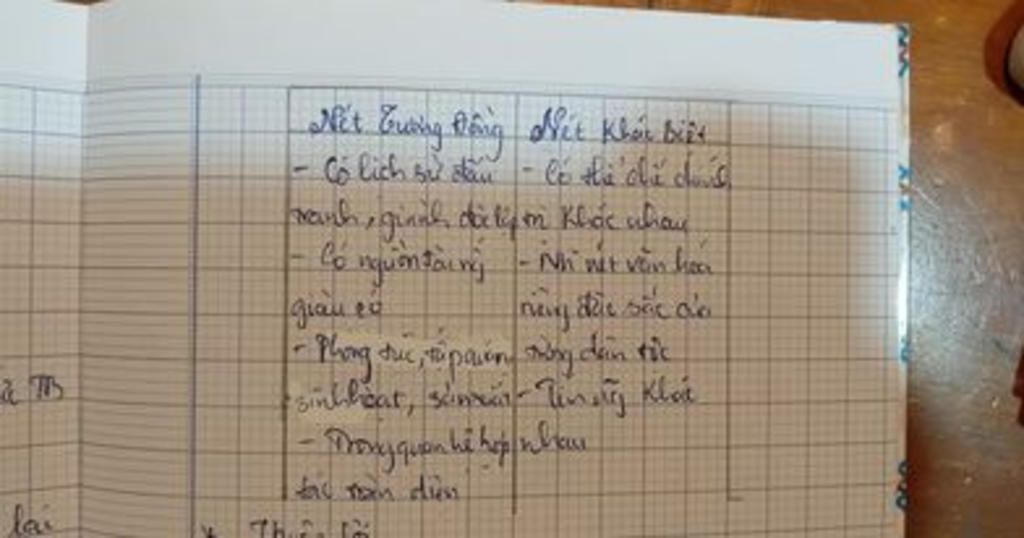 Nét Tương Đồng
- Có lịch sử đấu
tranh, giành độc lập
- Có nguồn tài ng
giàu có
- Phong tục, tập quán
sinh hoạt, sản xuất
- Trong quan hệ hợp
tác toàn diện
Nét Khác biệt
- Có thể chế chính
trị khác nhau
- Nh nét văn hoá
riêng đặc sắc của
từng dân tộc
- Tín ng khác
nhau
lại
* Thuận lợi